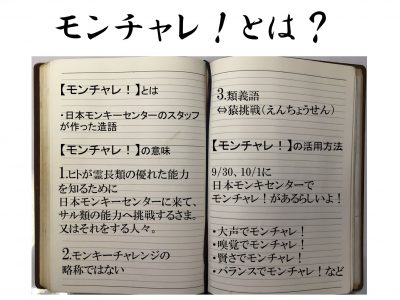 モンチャレ！とは？
【モンチャレ！】とは
・日本モンキーセンターのスタッフ
が作った造語
【モンチャレ！】の意味
1.ヒトが霊長類の優れた能力
を知るために
日本モンキーセンターに来て、
サル類の能力へ挑戦するさま。
又はそれをする人々。
2.モンキーチャレンジの
略称ではない
3.類義語
⇔猿挑戦(えんちょうせん)
【モンチャレ！】の活用方法
9/30、10/1に
日本モンキセンターで
モンチャレ！があるらしいよ！
・大声でモンチャレ！
・嗅覚でモンチャレ！
・賢さでモンチャレ！
・バランスでモンチャレ！など